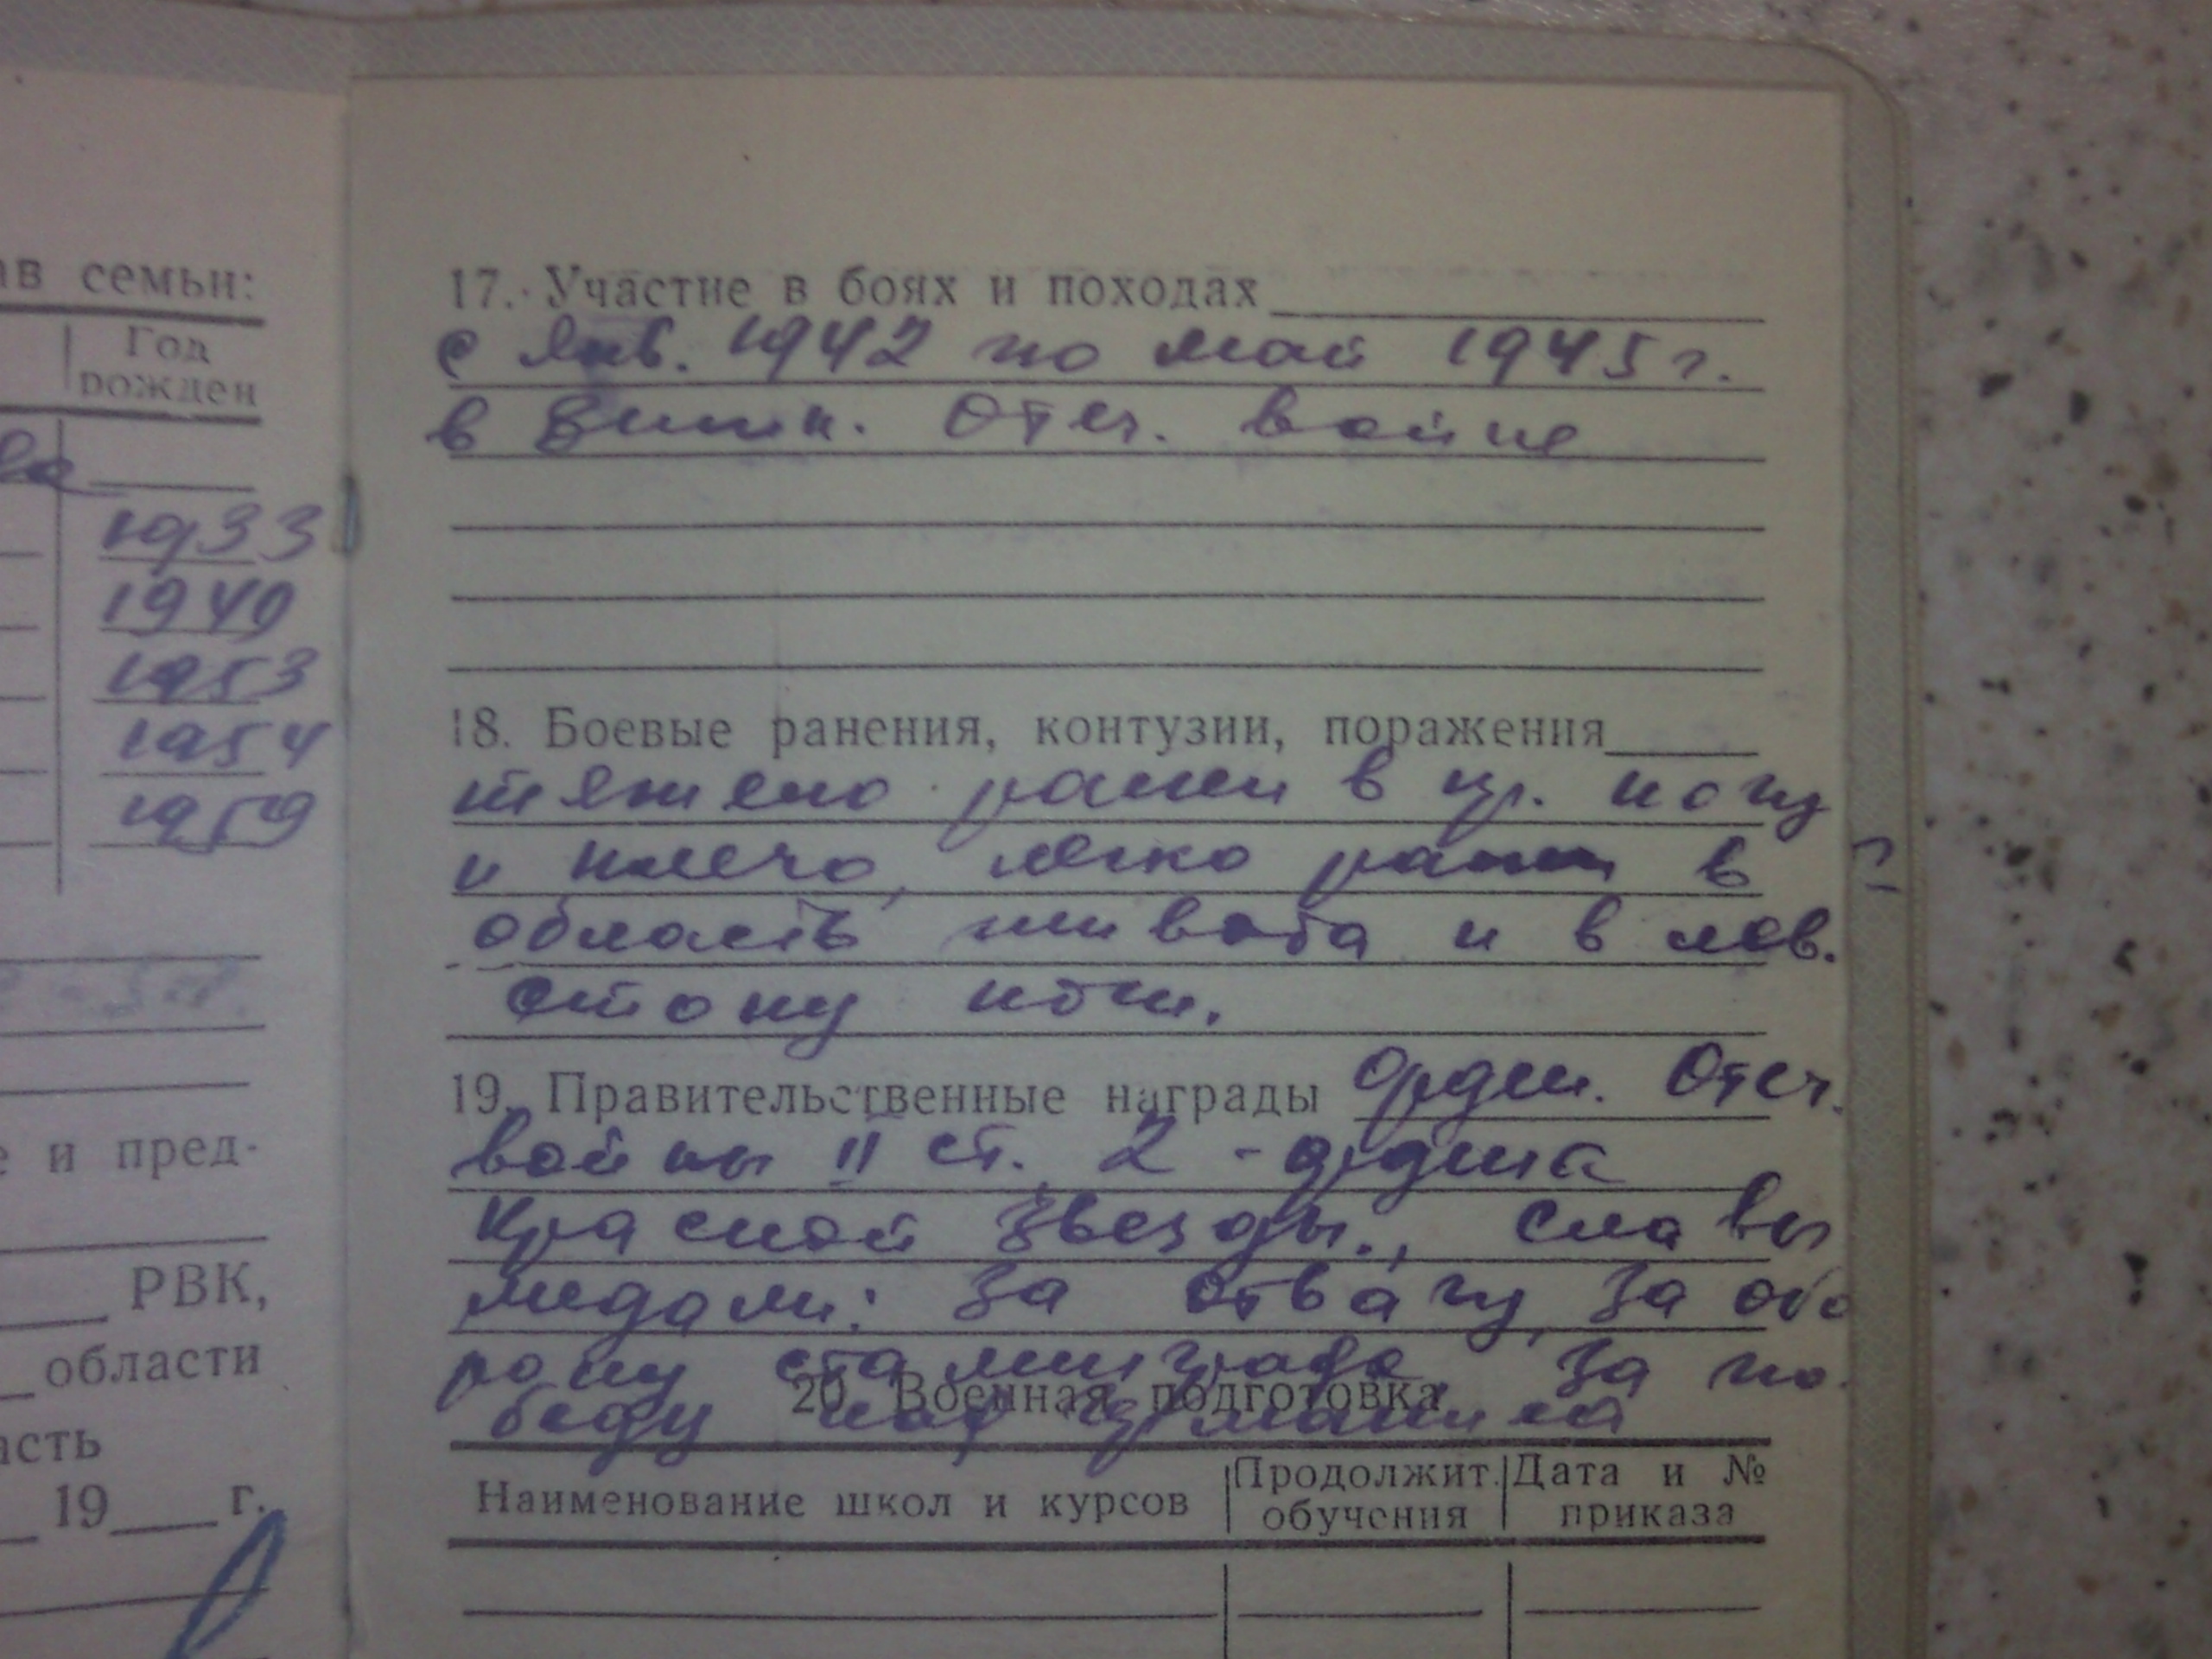 ав семьи:
Год
рожден
ва
1933
1940
1953
1954
1959
е и пред-
РВК,
области
асть
19 г.
17. Участие в боях и походах
с Янв. 1942 по май 1945 г.
в Отеч. войне
18. Боевые ранения, контузии, поражения
тяжело ранен в пр. ногу
и плечо, легко ранен в
область живота и в лев.
стопу ноги.
19. Правительственные награды Орден. Отеч.
войны II ст. 2 - ордена
Красной Звезды., славы
медали: За отвагу, За обо
рону сталинграда, За по-
беду над германией
20. Военная подготовка
Наименование школ и курсов
Продолжит. обучения
Дата и № приказа